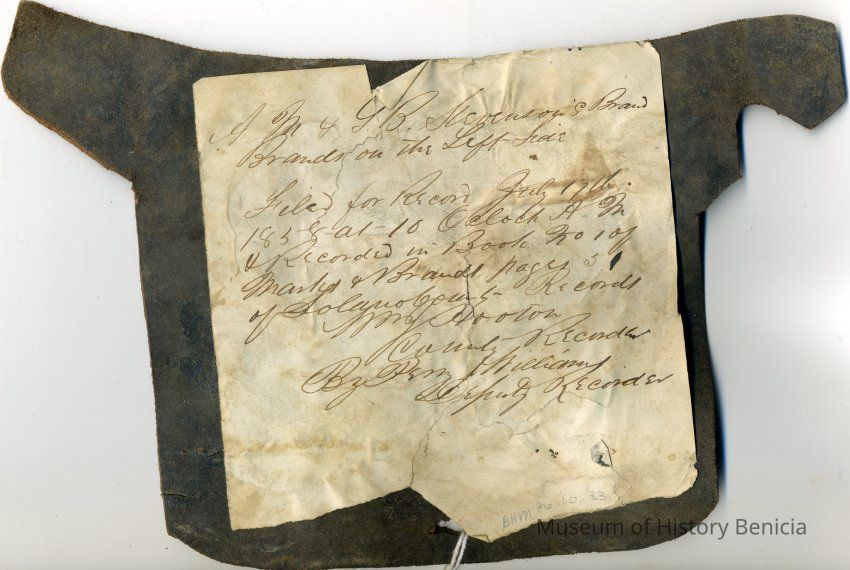 A M & G B. Stevenson's Brand
Brands on the Left Side
Filed for Record July 17th.
1858 at 10 Oclock A M
& Recorded in Book No 1 of
Marks & Brands, page 51
of Solano County Records
Wm J Hooton
County Recorder
By Perry Williams
Deputy Recorder
BHM 76.10.33
Museum of History Benicia